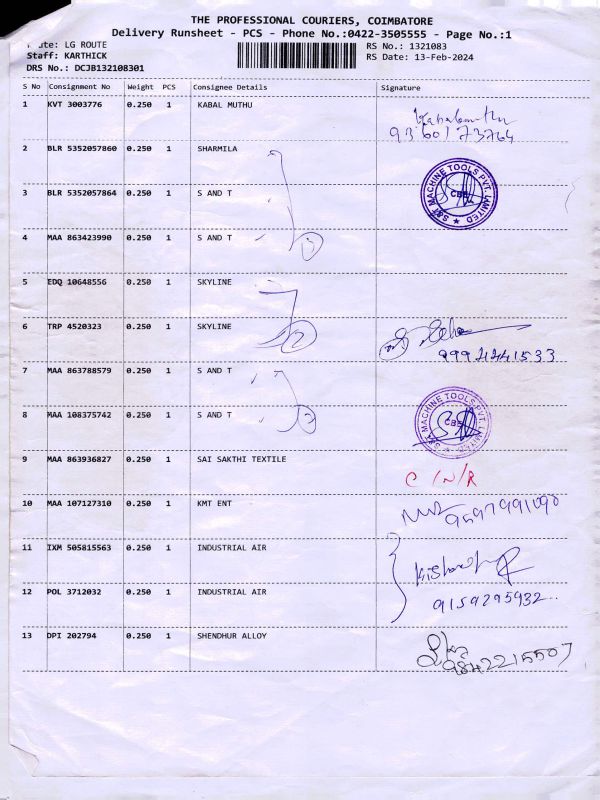 THE PROFESSIONAL COURIERS, COIMBATORE
Delivery Runsheet - PCS - Phone No.:0422-3505555 - Page No.:1
Route: LG ROUTE RS No.: 1321083
Staff: KARTHICK RS Date: 13-Feb-2024
DRS No.: DCJB132108301
S No Consignment No Weight PCS Consignee Details Signature
1 KVT 3003776 0.250 1 KABAL MUTHU
2 BLR 5352057860 0.250 1 SHARMILA
S&T MACHINE TOOLS PVT. LIMITED
CBE
3 BLR 5352057864 0.250 1 S AND T
4 MAA 863423990 0.250 1 S AND T
5 EDQ 10648556 0.250 1 SKYLINE
6 TRP 4520323 0.250 1 SKYLINE
7 MAA 863788579 0.250 1 S AND T
S&T MACHINE TOOLS PVT. LIMITED
CBE
8 MAA 108375742 0.250 1 S AND T
9 MAA 863936827 0.250 1 SAI SAKTHI TEXTILE
C/N/R
10 MAA 107127310 0.250 1 KMT ENT
11 IXM 505815563 0.250 1 INDUSTRIAL AIR
12 POL 3712032 0.250 1 INDUSTRIAL AIR
9159295932
13 DPI 202794 0.250 1 SHENDHUR ALLOY
9842215507